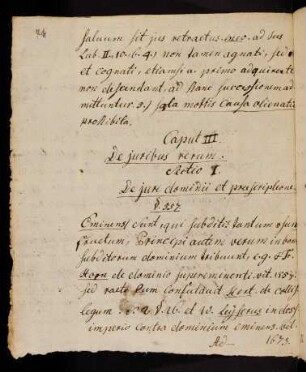 46
salvum sit jus retractus. ad dus
Lub. II. 10. 6. 4.) non tamen agnati, sed
et cognati, etiamsi a primo adquirente
non descendant, ad hanc successionem ad
mittuntur 3.) sola mortis causa alienatio
prohibita.
Caput III.
De juribus rerum.
Sectio I.
De jure dominii et praescriptione
§ 227
Eminens sunt, qui subditis tantum usum
fructum, Principi autem verum in bona
subditorum dominium tribuunt, e.g.
Horn de dominio supereminenti.
sed recte eum confutant Hert. de
legum § 16 et W. Leyserus in diss.
imperio contra dominium eminens.
1673.